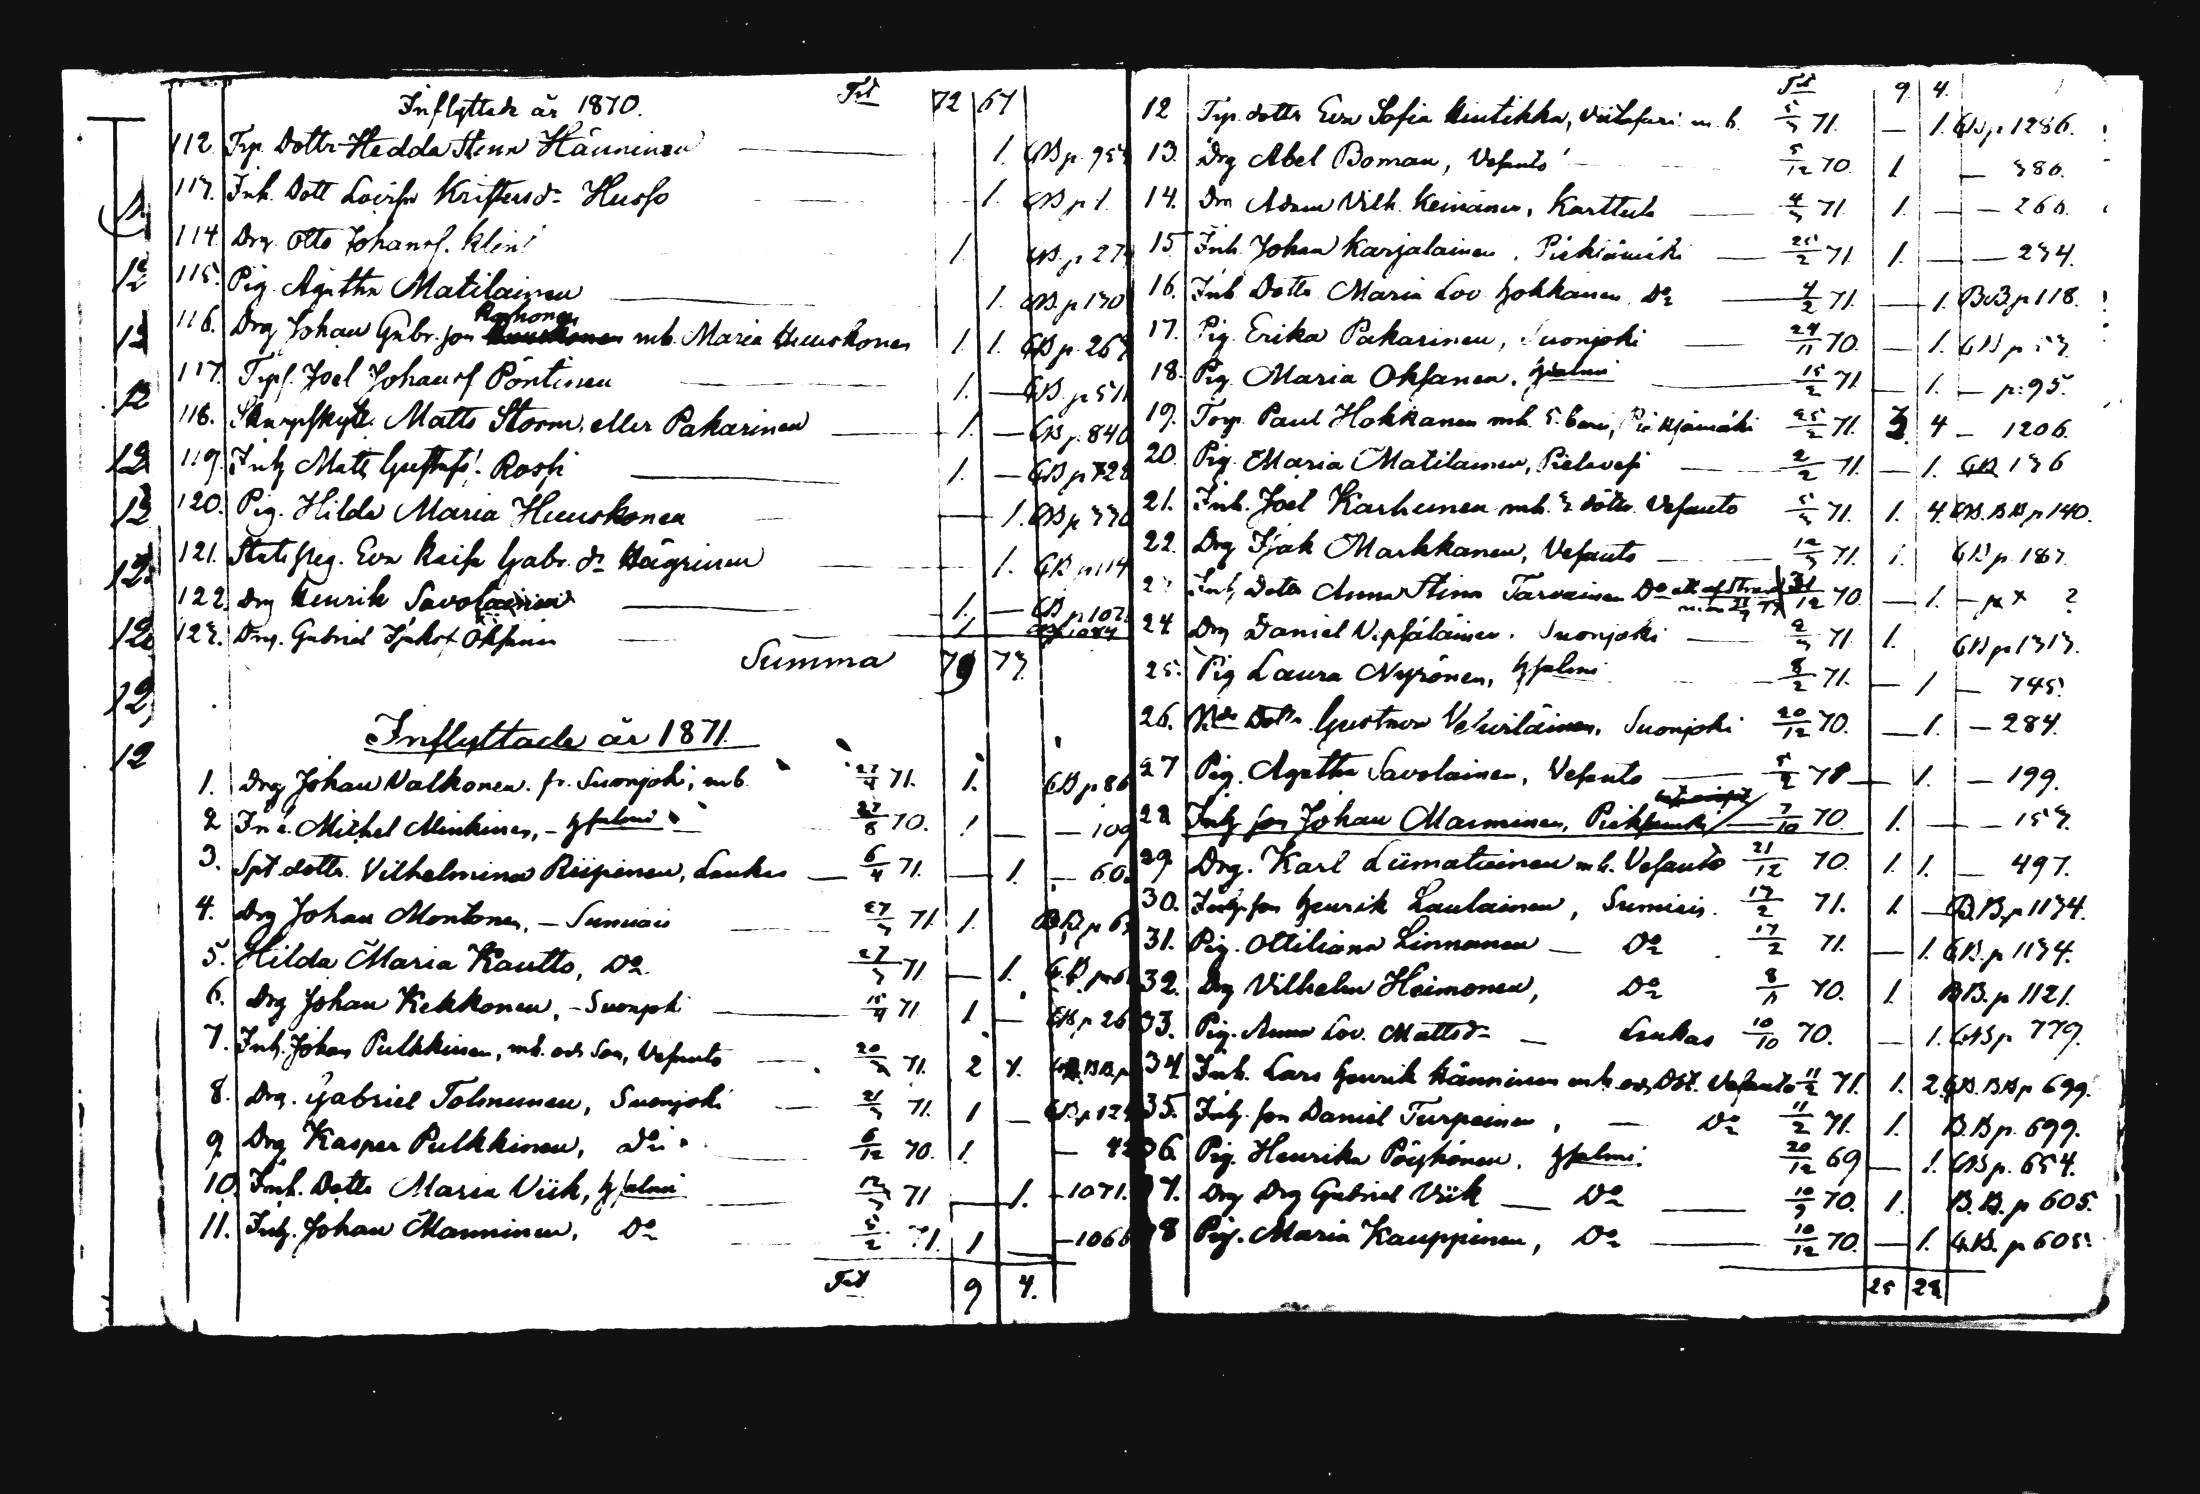 Inflyttade år 1870. Trt 72 67
112. Trp. Dottr Hedda Stina Hänninen — 1. GB p 95
113. Inh. Dott Lovisa Kristersdr Husso — 1. GB p 1.
114 Drg. Otto Johansf. Klint 1 GB. p 27
115. Pig. Agatha Matilainen — 1. GB p 170
116. Drg Johan Gabr. son Korhonen mh. Maria Huuskonen 1. 1. GB p. 267
117. Trpf. Joel Johansf Pöntinen — 1. — GB. p 511
118. Skarpskytt. Matts Storm, eller Pakarinen — 1. — GB p. 840
119. Inhy Matts Gustafs. Rossi — 1. — GB p 728
120. Pig. Hilda Maria Huuskonen — 1. GB p 770
121. Statspig. Eva Kaisa Gabr. dr Hägrinen — 1. GB p 114
122. Drg Henrik Savolainen — 1. — GB p 102
123. Drg. Gabriel Isaksf Oksanen — 1 1084
Summa 79 73
Inflyttade år 1871.
1. Drg Johan Valkonen. fr. Suonjoki, mb. 27/4 71. 1. GB p 86
2 Michel Minkinen, — Hsalmi 27/8 70. 1 — — 109
3. Spt. dottr. Vilhelmina Riipinen, Laukas — 6/4 71. — 1. — 60
4. Drg Johan Montonen, — Sumiais — 27/3 71 1. BB. p 6
5. Hilda Maria Kautto, Do 27/3 71 — 1. GB. p 6
6. Drg Johan Kekkonen, — Suonjoki — 15/4 71 1 — GB p 26
7. Inh. Johan Pulkkinen, mh. och Son, Vesanto — 20/3 71. 2 1. BB. p
8. Drg. Gabriel Tolmunen, Suonjoki — 21/3 71. 1 — GB. p 12
9 Drg Kasper Pulkkinen, Do — 6/12 70. 1. — 42
10. Inh. Dottr Maria Viik, Hsalmi — 12/3 71 — 1. — 1071.
11. Inhy. Johan Manninen, Do 5/2 71. 1 — — 1066
Trt 9 4.
Trt 9. 4.
12 Trp. dottr Eva Sofia Kintikka, Viitasaari m. b. 5/3 71. — 1. GB p 1286.
13. Drg Abel Boman, Vesanto 5/12 70. 1 — 380.
14. Drg Adam Vilh. Keinänen, Karttula — 4/3 71 1. — — 260.
15 Inh. Johan Karjalainen, Pieksämäki — 25/2 71 1. — — 234.
16. Inh. Dottr Maria Lov. Hokkanen Do — 4/2 71. — 1. BB. p 118.
17. Pig. Erika Pakarinen, Suonjoki — 24/11 70. — 1. GB p 53
18. Pig. Maria Oksanen, Hsalmi — 15/2 71 — 1. — p. 95.
19. Torp. Paul Hokkanen mh. 5. barn, Pieksämäki 25/2 71. 3. 4 — 1206.
20. Pig. Maria Matilainen, Pielavesi — 2/2 71. — 1. GB 136
21. Inh. Joel Karhunen mh. 3 döttr. Vesanto 5/3 71. 1. 4. GB. BB p 140.
22. Drg Isak Markkanen, Vesanto — 12/3 71. 1. GB p. 187.
Inh. Dottr Anna Stina Tarvainen Do 31/12 70 — 1. — ?
24 Drg Daniel Vepsäläinen. Suonjoki — 2/3 71 1. GB p 1313.
25. Pig Laura Nyrönen, Hsalmi 8/2 71. — 1 — 745.
26. Dottr Gustava Vehviläinen, Suonjoki 20/12 70. — 1. — 284.
27 Pig. Agatha Savolainen, Vesanto — 5/2 71 — 1. — 199.
28 Inhy son Johan Manninen, Pieksämäki — 7/10 70. 1. — — 157.
29. Drg. Karl Liimatainen mh. Vesanto 21/12 70. 1. 1. — 497.
30. Inhy. son Henrik Laulainen, Sumiais. 17/2 71. 1. — B.B. p 1134.
31. Pig. Ottiliana Linnanen — Do 17/2 71. — 1. GB. p 1134.
32. Drg Vilhelm Heimonen, Do 8/11 70. 1. BB. p 1121.
33. Pig. Anna Lov. Mattsdr — Laukas 10/10 70. — 1. GB p 779.
34. Inh. Lars Henrik Hänninen mh. och Dot. Vesanto 11/2 71. 1. 2. GB. BB p 699.
35. Inhy. son Daniel Turpeinen, — Do 11/2 71. 1. B. B p. 699.
36 Pig. Henrika Pöyhönen, Hsalmi. 20/12 69 — 1. GB p. 654.
37. Drg Drg Gabriel Viik — Do — 10/9 70. 1. B. B. p 605.
38 Pig. Maria Kauppinen, Do — 10/12 70. — 1. G.B. p 605.
25 23